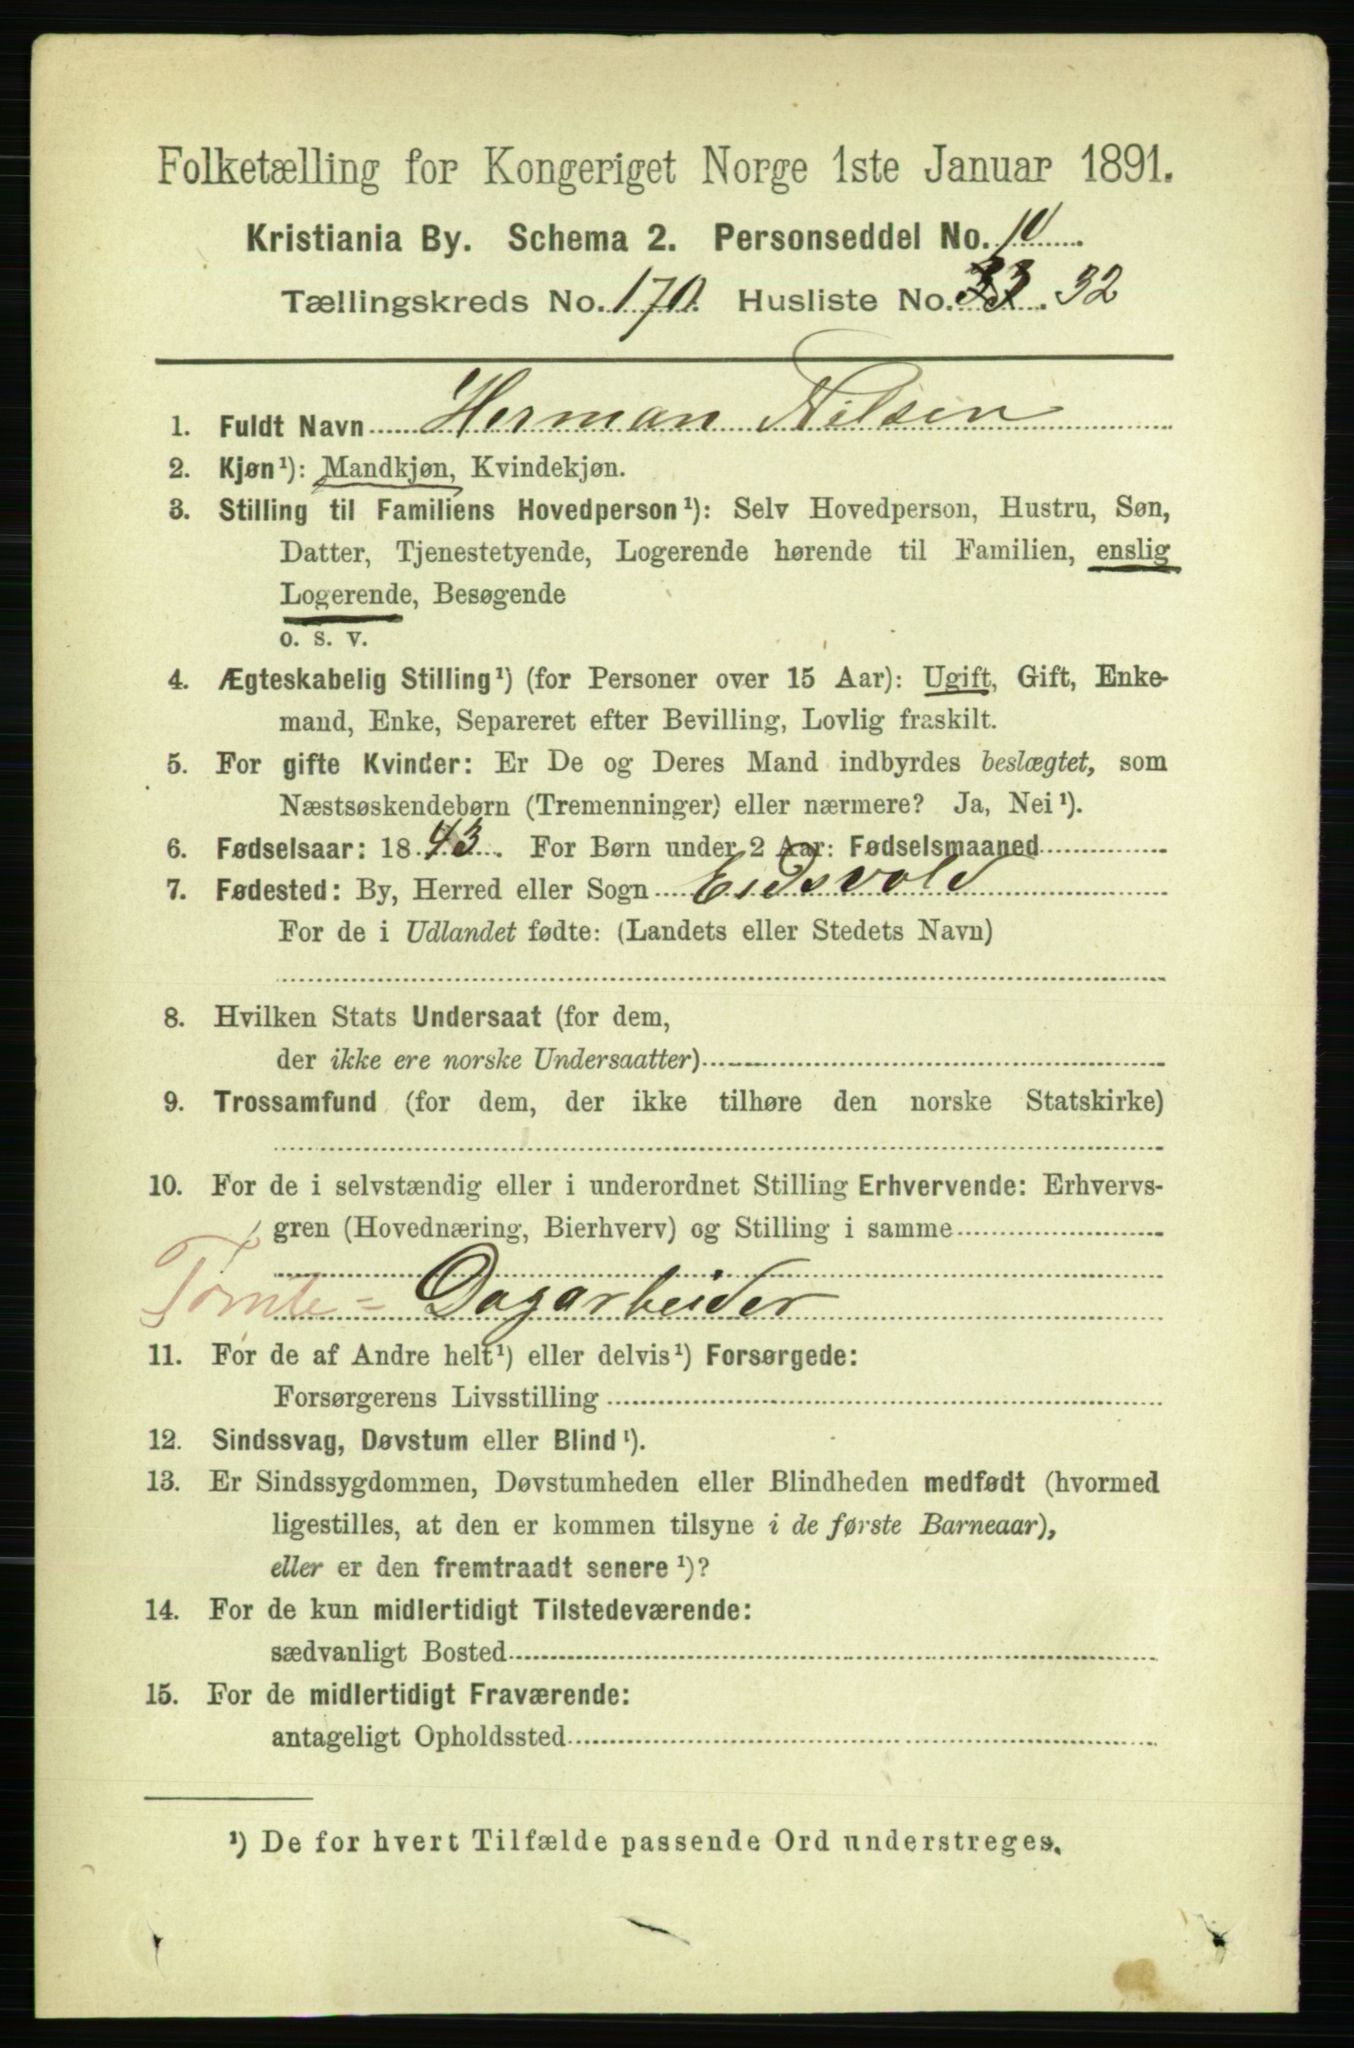 Folketælling for Kongeriget Norge 1ste Januar 1891.
Kristiania By. Schema 2. Personseddel No. 10
Tællingskreds No. 170. Husliste No. 33. 32
1. Fuldt Navn Herman Nilsen
2. Kjøn¹): Mandkjøn, Kvindekjøn.
3. Stilling til Familiens Hovedperson¹): Selv Hovedperson, Hustru, Søn,
Datter, Tjenestetyende, Logerende hørende til Familien, enslig
Logerende, Besøgende
o. s. v.
4. Ægteskabelig Stilling¹) (for Personer over 15 Aar): Ugift, Gift, Enke-
mand, Enke, Separeret efter Bevilling, Lovlig fraskilt.
5. For gifte Kvinder: Er De og Deres Mand indbyrdes beslægtet, som
Næstsøskendebørn (Tremenninger) eller nærmere? Ja, Nei¹).
6. Fødselsaar: 1843. For Børn under 2 Aar: Fødselsmaaned
7. Fødested: By, Herred eller Sogn Eidsvold
For de i Udlandet fødte: (Landets eller Stedets Navn)
8. Hvilken Stats Undersaat (for dem,
der ikke ere norske Undersaatter)
9. Trossamfund (for dem, der ikke tilhøre den norske Statskirke)
10. For de i selvstændig eller i underordnet Stilling Erhvervende: Erhvervs-
gren (Hovednæring, Bierhverv) og Stilling i samme
Tomte= Dagarbeider
11. For de af Andre helt¹) eller delvis¹) Forsørgede:
Forsørgerens Livsstilling
12. Sindssvag, Døvstum eller Blind¹).
13. Er Sindssygdommen, Døvstumheden eller Blindheden medfødt (hvormed
ligestilles, at den er kommen tilsyne i de første Barneaar),
eller er den fremtraadt senere¹)?
14. For de kun midlertidigt Tilstedeværende:
sædvanligt Bosted
15. For de midlertidigt Fraværende:
antageligt Opholdssted
¹) De for hvert Tilfælde passende Ord understreges.